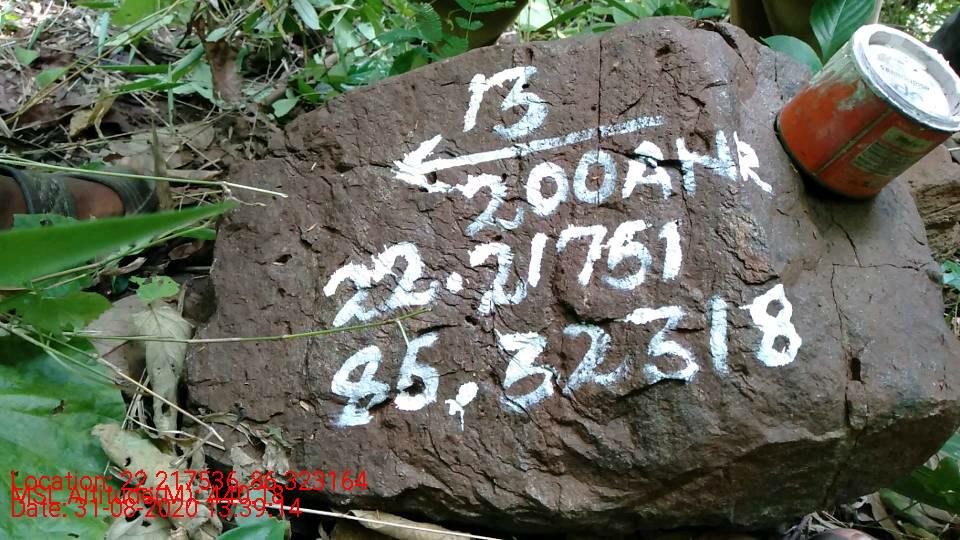 13
200AHR
22.21751
86.32318
Location: 22.217536, 86.323164
MSL Altitude(M): 440.18
Date: 31-08-2020 13:39:14